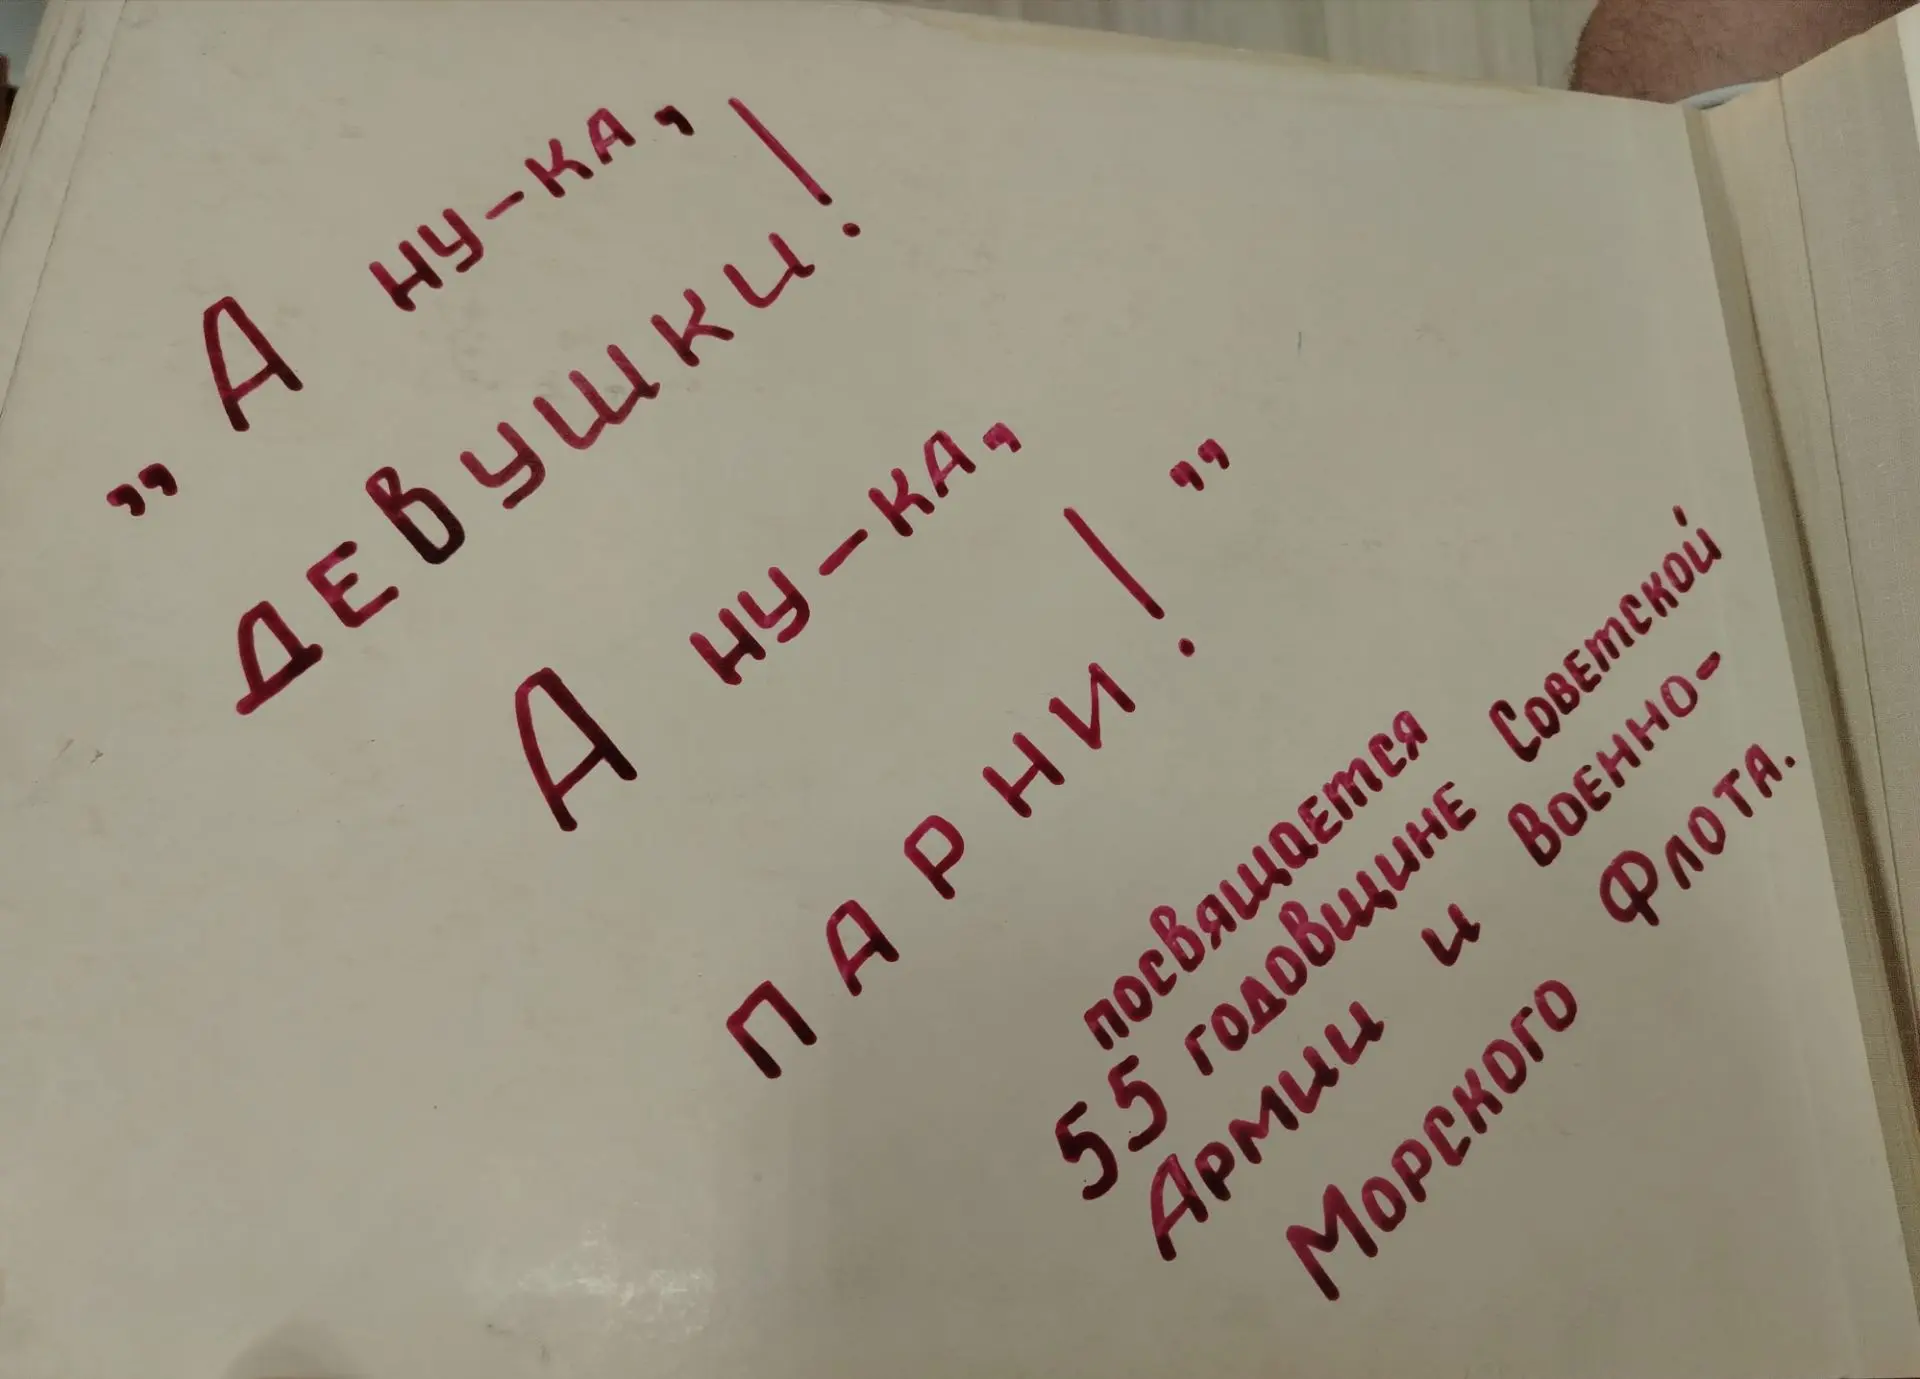 „А ну-ка,
девушки!
А ну-ка,
парни!”
посвящается
55 годовщине Советской
Армии и Военно-
Морского Флота.